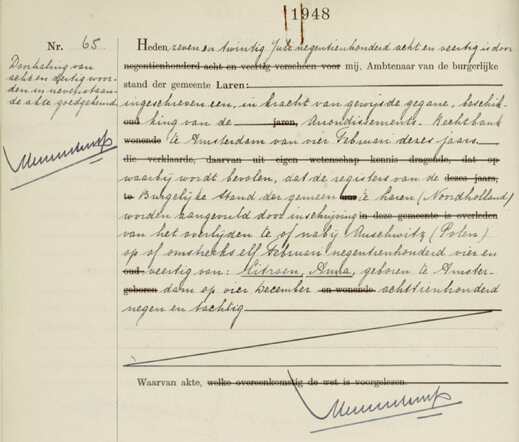 1948
Nr. 65.
Heden, zeven en twintig Juli negentienhonderd acht en veertig is door
negentienhonderd acht en veertig verscheen voor mij, Ambtenaar van de burgerlijke
stand der gemeente Laren:
Doorhaling van
acht en dertig woor-
den in nevenstaan-
de akte goedgekeurd.
ingeschreven een, in kracht van gewijsde gegane, beschik-
oud king van de jaren, Arrondissements-Rechtbank
wonende te Amsterdam van vier Februari dezes jaars
die verklaarde, daarvan uit eigen wetenschap kennis dragende, dat op
waarbij wordt bevolen, dat de registers van de dezes jaars,
te Burgelijke Stand der gemeen uur te Laren (Noordholland)
worden aangevuld door inschrijving in deze gemeente is overleden
van het overlijden te of nabij Auschwitz (Polen)
op of omstreeks elf Februari negentienhonderd vier en
oud veertig van: Citroen, Anna, geboren te Amster-
geboren dam op vier December en wonende achttienhonderd
negen en tachtig
Waarvan akte, welke overeenkomstig de wet is voorgelezen.